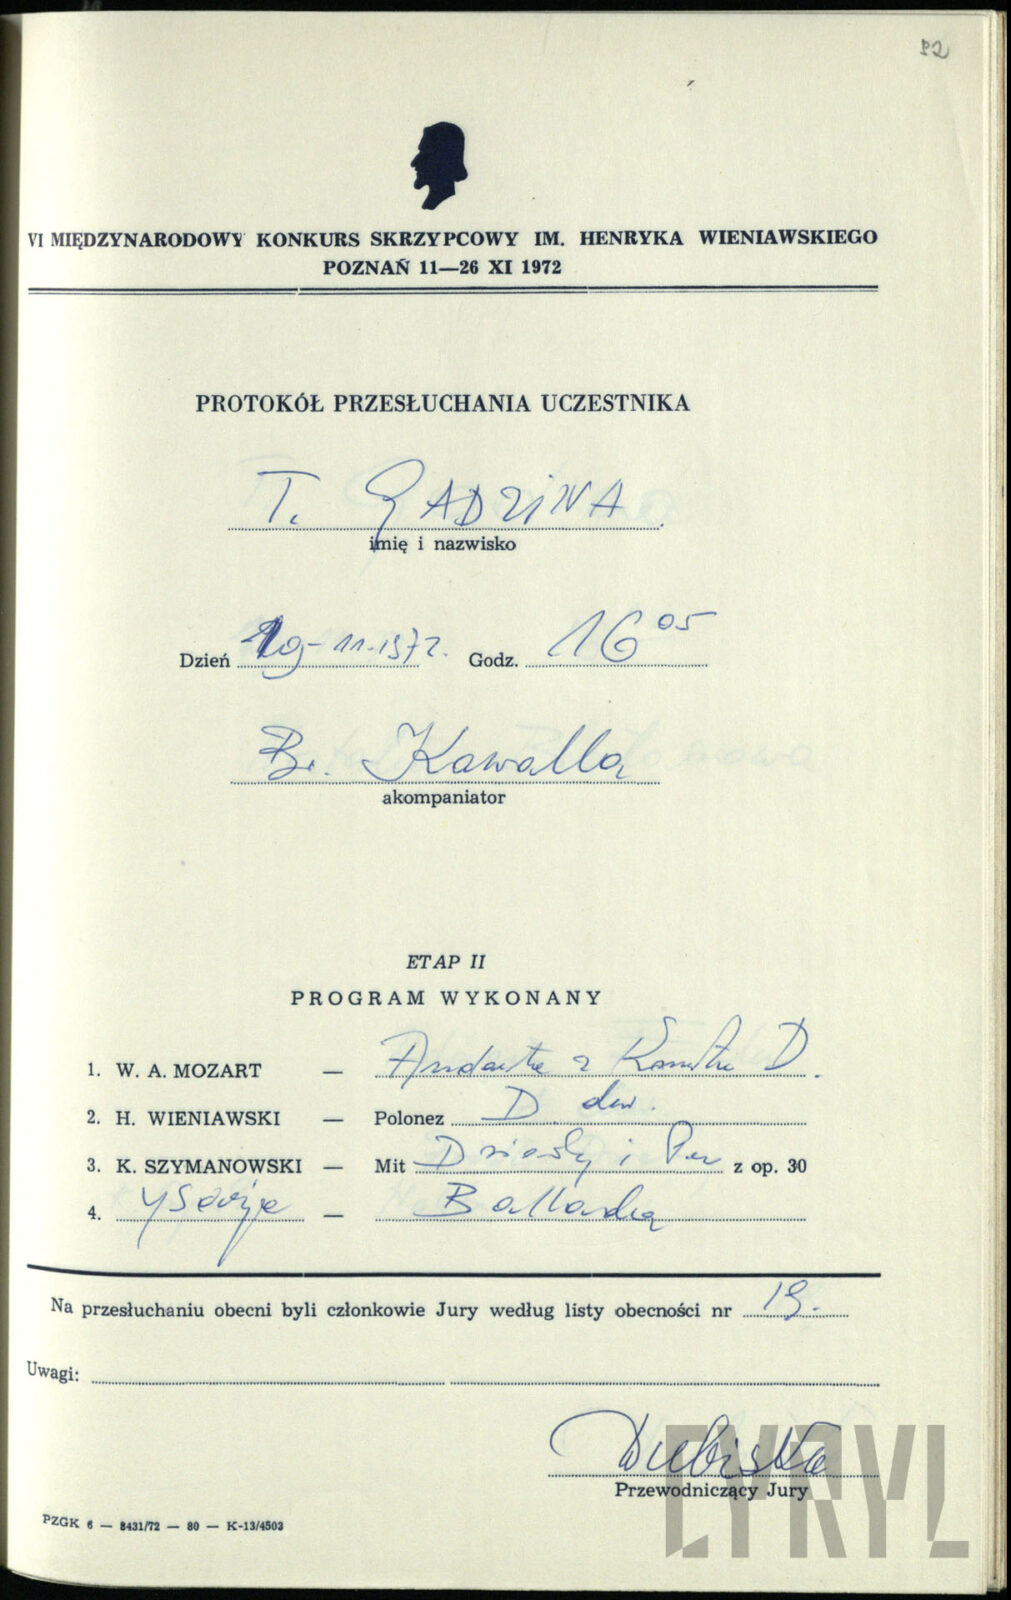 92
VI MIĘDZYNARODOWY KONKURS SKRZYPCOWY IM. HENRYKA WIENIAWSKIEGO
POZNAŃ 11—26 XI 1972
PROTOKÓŁ PRZESŁUCHANIA UCZESTNIKA
T. GADZINA
imię i nazwisko
Dzień 19-11-1972. Godz. 16 05
Br. Kawalla
akompaniator
ETAP II
PROGRAM WYKONANY
1. W. A. MOZART — Andante z D.
2. H. WIENIAWSKI — Polonez D dur.
3. K. SZYMANOWSKI — Mit Driady i Pan z op. 30
4. Ysaÿe — Ballada
Na przesłuchaniu obecni byli członkowie Jury według listy obecności nr 19.
Uwagi:
Dubiska
Przewodniczący Jury
PZGK 6 — 8431/72 — 80 — K-13/4503
CYRYL